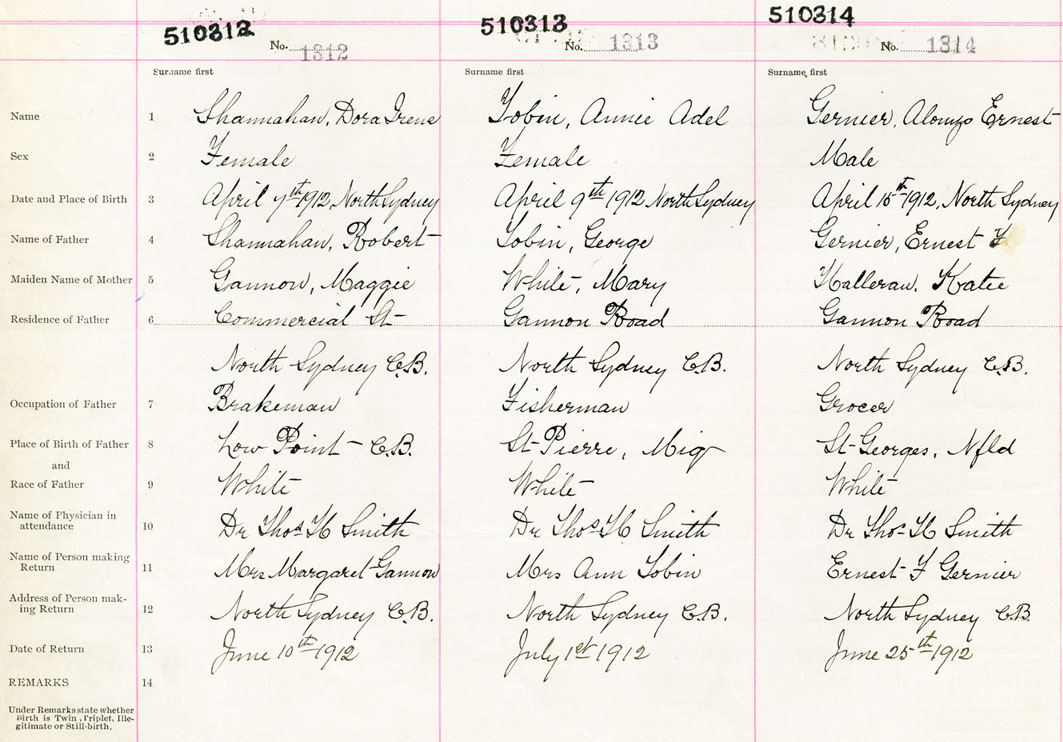 510312 510313 510314
No. 1312 No. 1313 No. 1314
Surname first Surname first Surname first
Name 1 Shannahan, Dora Irene Tobin, Annie Adel Gernier, Alonzo Ernest
Sex 2 Female Female Male
Date and Place of Birth 3 April 7th 1912, North Sydney April 9th 1912 North Sydney April 15th 1912, North Sydney
Name of Father 4 Shannahan, Robert Tobin, George Gernier, Ernest F
Maiden Name of Mother 5 Gannon, Maggie White, Mary Halleran, Katie
Residence of Father 6 Commercial St Gannon Road Gannon Road
North Sydney C.B. North Sydney C.B. North Sydney C.B.
Occupation of Father 7 Brakeman Fisherman Grocer
Place of Birth of Father 8 Low Point C.B. St Pierre, Miq St Georges, Nfld
and
Race of Father 9 White White White
Name of Physician in
attendance 10 Dr Thos H Smith Dr Thos H Smith Dr Thos H Smith
Name of Person making
Return 11 Mrs Margaret Gannon Mrs Ann Tobin Ernest F Gernier
Address of Person mak-
ing Return 12 North Sydney C.B. North Sydney C.B. North Sydney C.B.
Date of Return 13 June 10th 1912 July 1st 1912 June 25th 1912
REMARKS 14
Under Remarks state whether
Birth is Twin, Triplet, Ille-
gitimate or Still-birth.